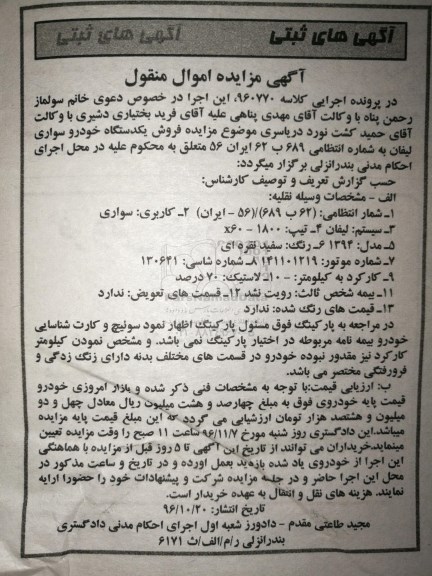 آگهی های ثبتی آگهی های ثبتی
آگهی مزایده اموال منقول
در پرونده اجرایی کلاسه ۹۶۰۷۷۰، این اجرا در خصوص دعوی خانم سولماز
رحمن پناه با وکالت آقای مهدی پناهی علیه آقای فرید بختیاری دشیری با وکالت
آقای حمید کشت نورد درباسری موضوع مزایده فروش یکدستگاه خودرو سواری
لیفان به شماره انتظامی ۶۸۹ ب ۶۲ ایران ۵۶ متعلق به محکوم علیه در محل اجرای
احکام مدنی بندرانزلی برگزار میگردد:
حسب گزارش تعریف و توصیف کارشناس:
الف - مشخصات وسیله نقلیه:
۱ـ شمار انتظامی: (۶۲ ب ۶۸۹)/(۵۶ - ایران) ۲ـ کاربری: سواری
۳ـ سیستم: لیفان ۴ـ تیپ: ۱۸۰۰ - x۶۰
۵ـ مدل: ۱۳۹۴ ۶ـ رنگ: سفید نقره ای
۷ـ شماره موتور: ۱۴۱۱۰۱۲۱۹ ۸ـ شماره شاسی: ۱۳۰۶۴۱
۹ـ کارکرد به کیلومتر: – ۱۰ـ لاستیک: ۷۰ درصد
۱۱ـ بیمه شخص ثالث: رویت نشد ۱۲ـ قسمت های تعویض: ندارد
۱۳ـ قیمت های رنگ شده: ندارد
در مراجعه به پارکینگ فوق مسئول پارکینگ اظهار نمود سوئیچ و کارت شناسایی
خودرو بیمه نامه مربوطه در اختیار پارکینگ نمی باشد. و مشخص نمودن کیلومتر
کارکرد نیز مقدور نبوده خودرو در قسمت های مختلف بدنه دارای زنگ زدگی و
فرورفتگی مختصر می باشد.
ب: ارزیابی قیمت: با توجه به مشخصات فنی ذکر شده و بازار امروزی خودرو
قیمت پایه خودروی فوق به مبلغ چهارصد و هشت میلیون ریال معادل چهل و دو
میلیون و هشتصد هزار تومان ارزشیابی می گردد که این مبلغ قیمت پایه مزایده
میباشد. این دادگستری روز شنبه مورخ ۹۶/۱۱/۷ ساعت ۱۱ صبح را وقت مزایده تعیین
مینماید. خریداران می توانند از تاریخ این آگهی تا ۵ روز قبل از مزایده با هماهنگی
این اجرا از خودروی یاد شده بازدید بعمل آورده و در تاریخ و ساعت مذکور در
محل این اجرا حاضر و در جلسه مزایده شرکت و پیشنهادات خود را حضورا ارایه
نمایند. هزینه های نقل و انتقال به عهده خریدار است.
تاریخ انتشار: ۹۶/۱۰/۲۰
مجید طاعتی مقدم - دادورز شعبه اول اجرای احکام مدنی دادگستری
بندرانزلی ر/م/الف/ث ۶۱۷۱